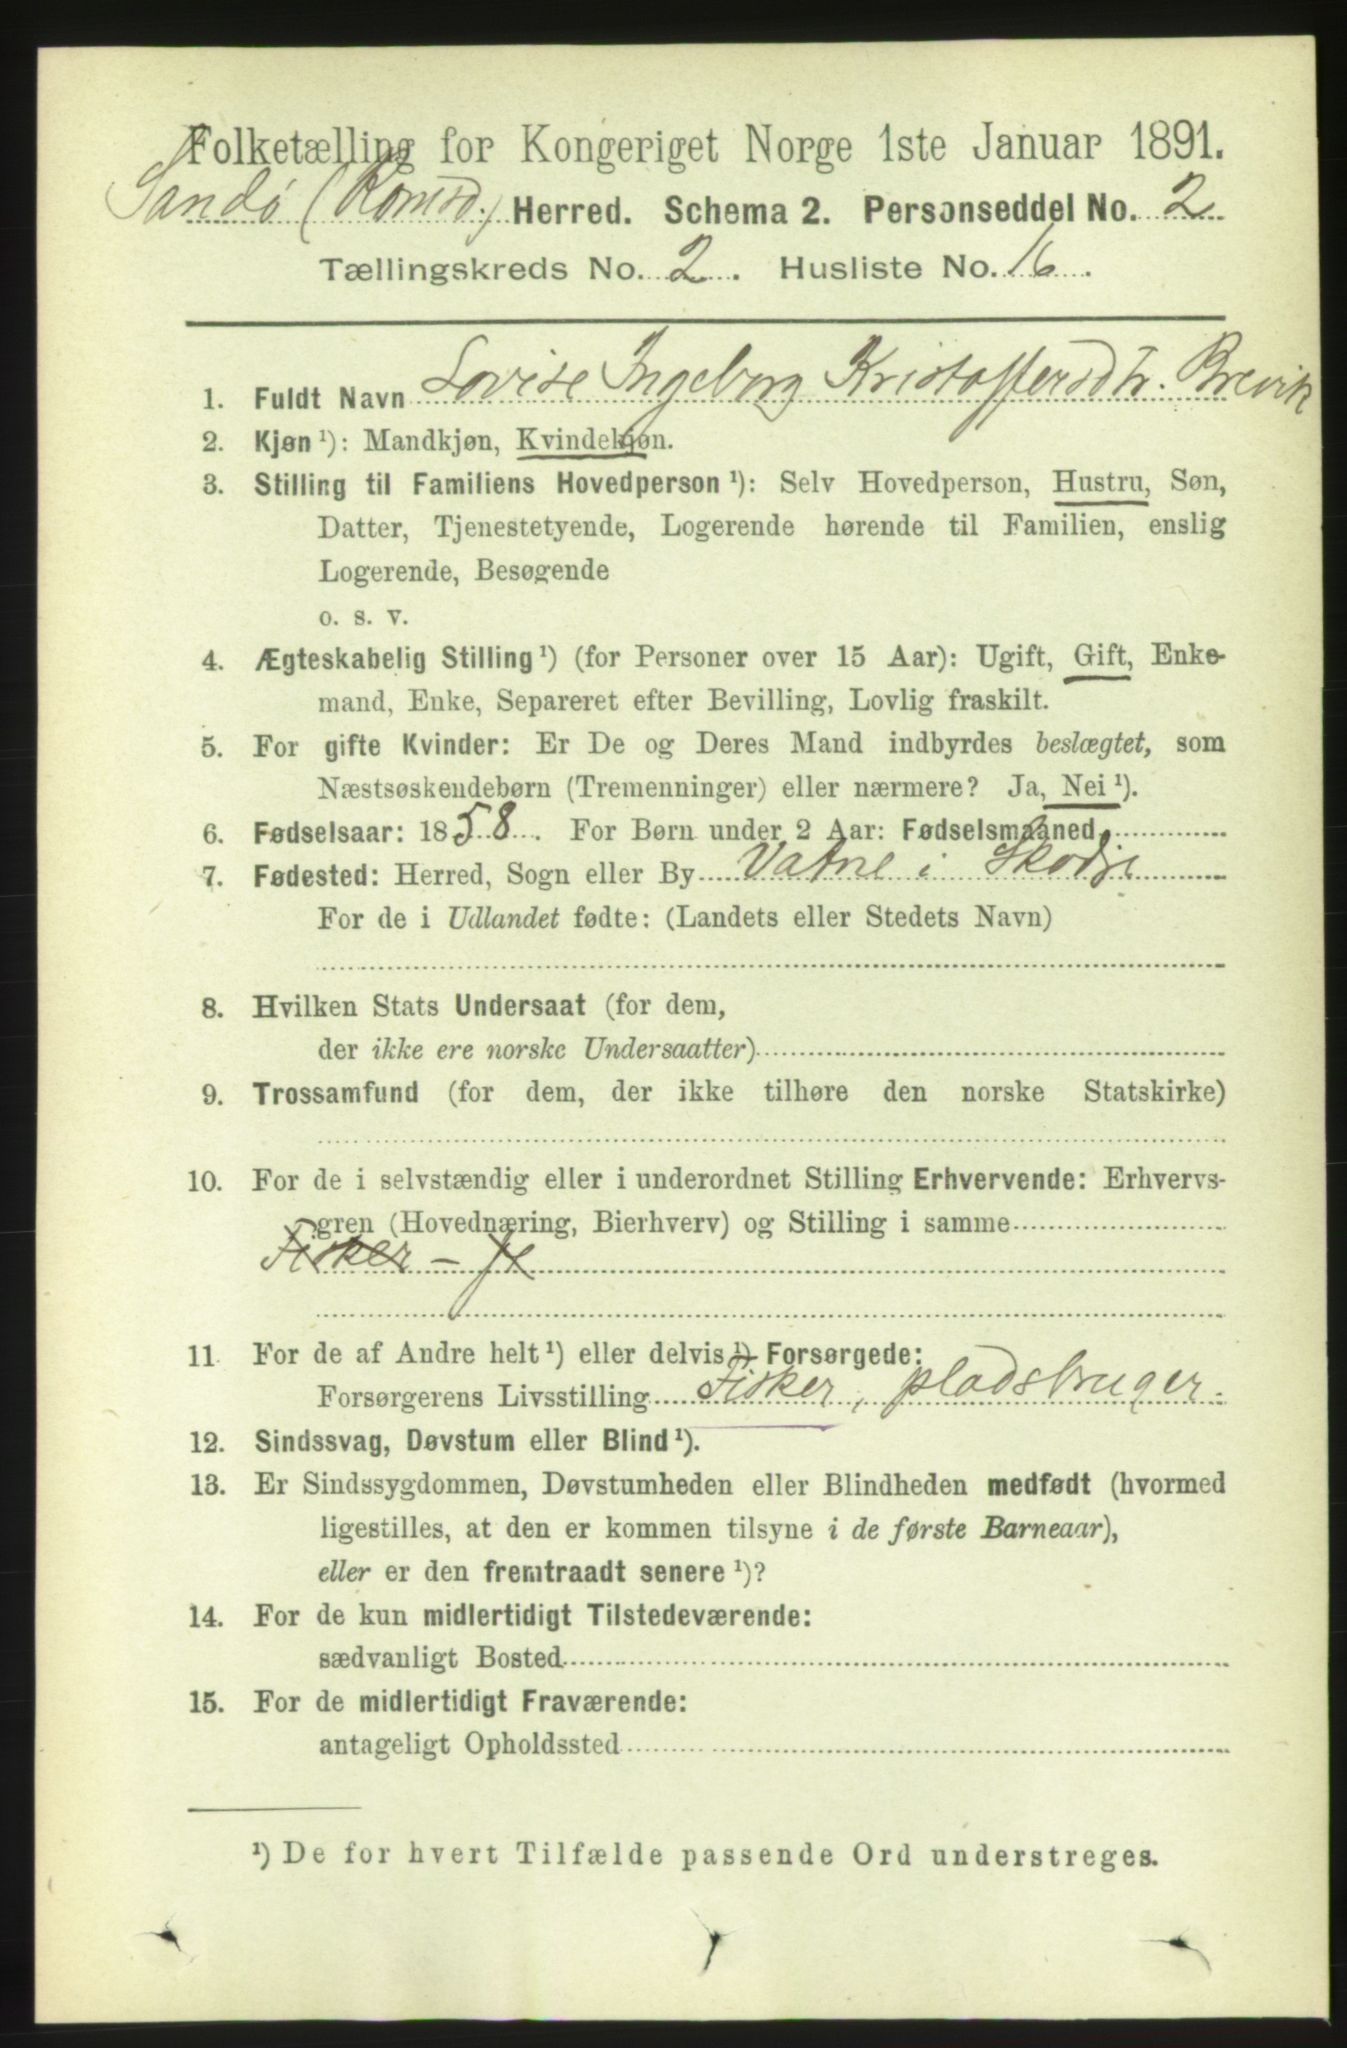 Folketælling for Kongeriget Norge 1ste Januar 1891.
Sandø (Romsd.) Herred. Schema 2. Personseddel No. 2
Tællingskreds No. 2. Husliste No. 16.
1. Fuldt Navn Lovise Ingeborg Kristoffersdtr. Brevik
2. Kjøn ¹): Mandkjøn, Kvindekjøn.
3. Stilling til Familiens Hovedperson ¹): Selv Hovedperson, Hustru, Søn,
Datter, Tjenestetyende, Logerende hørende til Familien, enslig
Logerende, Besøgende
o. s. v.
4. Ægteskabelig Stilling ¹) (for Personer over 15 Aar): Ugift, Gift, Enke-
mand, Enke, Separeret efter Bevilling, Lovlig fraskilt.
5. For gifte Kvinder: Er De og Deres Mand indbyrdes beslægtet, som
Næstsøskendebørn (Tremenninger) eller nærmere? Ja, Nei ¹).
6. Fødselsaar: 1858. For Børn under 2 Aar: Fødselsmaaned
7. Fødested: Herred, Sogn eller By Vatne i Skodje
For de i Udlandet fødte: (Landets eller Stedets Navn)
8. Hvilken Stats Undersaat (for dem,
der ikke ere norske Undersaatter)
9. Trossamfund (for dem, der ikke tilhøre den norske Statskirke)
10. For de i selvstændig eller i underordnet Stilling Erhvervende: Erhvervs-
gren (Hovednæring, Bierhverv) og Stilling i samme
Fisker –
11 For de af Andre helt ¹) eller delvis ¹) Forsørgede:
Forsørgerens Livsstilling Fisker, pladsbruger.
12. Sindssvag, Døvstum eller Blind ¹).
13. Er Sindssygdommen, Døvstumheden eller Blindheden medfødt (hvormed
ligestilles, at den er kommen tilsyne i de første Barneaar),
eller er den fremtraadt senere ¹)?
14. For de kun midlertidigt Tilstedeværende:
sædvanligt Bosted
15. For de midlertidigt Fraværende:
antageligt Opholdssted
¹) De for hvert Tilfælde passende Ord understreges.